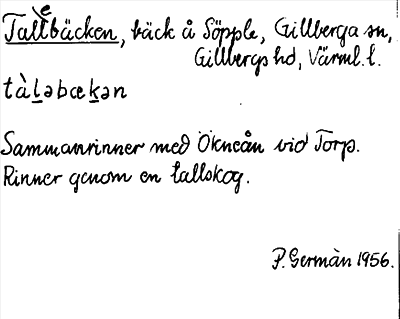 Tallebäcken, bäck å Söpple, Gillberga sn,
Gillbergs hd, Värml. l.
tàḷəbœḵən
Sammanrinner med Ökneån vid Torp.
Rinner genom en tallskog.
P. Germàn 1956.